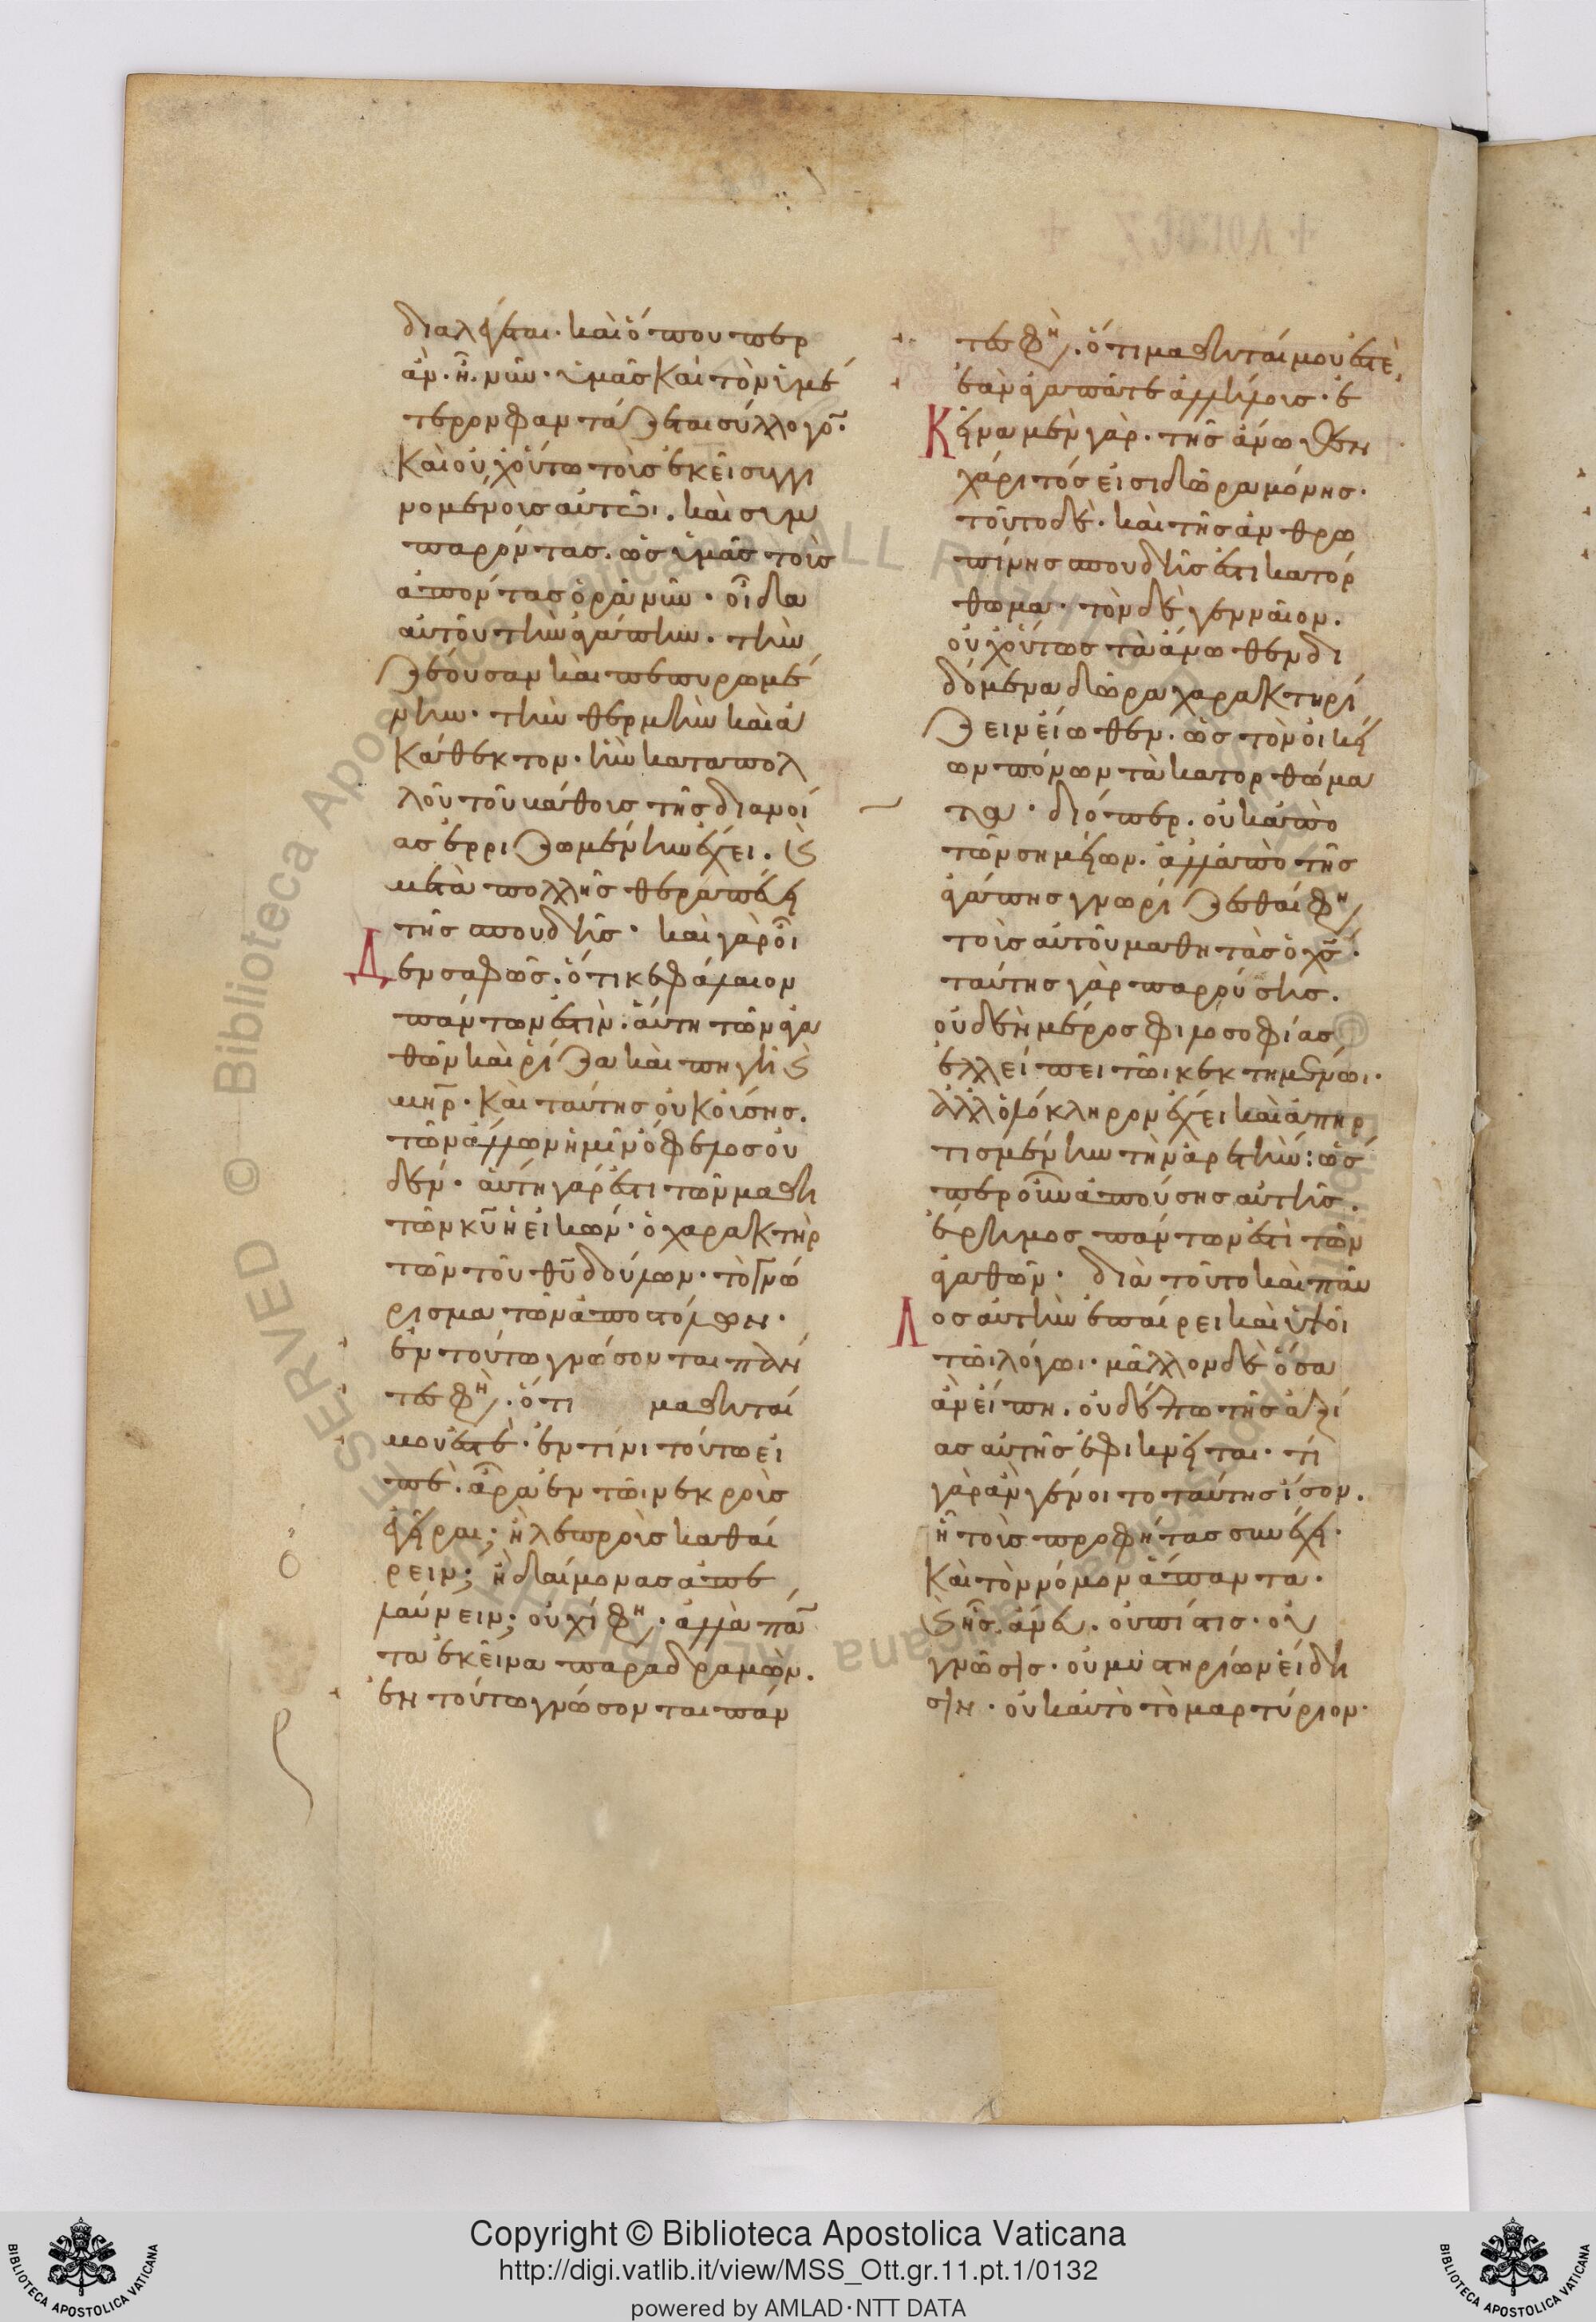 διαλέγεται· καὶ ὅπου περ
ἂν ἦ νῦν· ὑμᾶς καὶ τὸν ὑμέ
τερον φαντάζεται σύλλογο̅·
καὶ οὐχ οὕτω τοῖς ἐκεῖ συγγι
νομένοις αὐτῶι· καὶ συμ
παρόντας· ὡς ὑμᾶς τοὺς
ἀπόντας ὁρᾶ νῦν· οἶδα
αὐτοῦ τὴν ἀγάπην· τὴν
ζέουσαν καὶ πεπυρωμέ
νην· τὴν θερμὴν καὶ ἀ
κάθεκτον· ἣν κατὰ πολ
λοῦ τοῦ βάθους τῆς διανοί
ας ἐρριζωμένην ἔχει· καὶ
μετὰ πολλῆς θεραπεύει
τῆς σπουδῆς· καὶ γὰρ οἶ
δεν σαφῶς· ὅτι κεφάλαιον
πάντων ἐστὶν αὕτη τῶν ἀγα
θῶν καὶ ῥίζα καὶ πηγὴ καὶ
μηρ̅· καὶ ταύτης οὐκ οὔσης·
τῶν ἄλλων ἡμῖν ὄφελος οὐ
δέν· αὕτη γάρ ἐστι τῶν μαθη
τῶν κῡ ἡ εἰκών· ὁ χαρακτὴρ
τῶν τοῦ θῡ δούλων· τὸ γνώ
ρισμα τῶν ἀποστόλων·
ἐν τούτω γνώσονται πάν
τες φη· ὅτι μαθηταί
μου ἐστέ· ἐν τίνι τούτω εἰ
πέ· ἆρα ἐν τῶι νεκροὺς
ἐγεῖραι; ἢ λεπροὺς καθαί
ρειν; ἢ δαίμονας ἀπε
λαύνειν; οὐχί φη· ἀλλὰ πά̅
τα ἐκεῖνα παραδραμὼν·
ἐν τούτω γνώσονται πάν
τες φη· ὅτι μαθηταί μου ἐστὲ,
ἐὰν ἀγαπᾶτε ἀλλήλους· ἐ
κεῖνα μὲν γὰρ· τῆς ἄνωθεν
χάριτός εἰσι δῶρα μόνης·
τοῦτο δὲ· καὶ τῆς ἀνθρω
πίνης σπουδῆς ἐστι κατόρ
θωμα· τὸν δὲ γενναῖον·
οὐχ οὕτως τὰ ἄνωθεν δι
δόμενα δῶρα χαρακτηρί
ζειν εἴωθεν· ὡς τὸν οἰκεί
ων πόνων τὰ κατορθώμα
τα· διόπερ· οὐκ ἀπὸ
τῶν σημείων· ἀλλ' ἀπὸ τῆς
ἀγάπης γνωρίζεσθαί φη
τοὺς αὐτοῦ μαθητὰς ὁ χς̅·
ταύτης γὰρ παρούσης·
οὐδὲν μέρος φιλοσοφίας
ἐλλείπει τῶι κεκτημένωι·
ἀλλ' ὁλόκληρον ἔχει καὶ ἀπηρ
τισμένην τὴν ἀρετήν: ὥσ
περ οὖν ἀπούσης αὐτῆς·
ἔρημος πάντων ἐστὶ τῶν
ἀγαθῶν· διὰ τοῦτο καὶ παῦ
λος αὐτὴν ἐπαίρει καὶ ὑψοῖ
τῶι λόγωι· μᾶλλον δὲ ὅσα
ἂν εἴπη· οὐδέπω τῆς ἀξί
ας αὐτῆς ἐφικνεῖται· τί
γὰρ ἂν γένοιτο ταύτης ἴσον·
ἣ τοὺς προφήτας συνέχει·
καὶ τὸν νόμον ἅπαντα·
καὶ ἧς ἄνευ· οὐ πίστις· οὐ
γνῶσις· οὐ μυστηρίων εἴδη
σιν· οὐκ αὐτὸ τὸ μαρτύριον·
Copyright © Biblioteca Apostolica Vaticana
http://digi.vatlib.it/view/MSS_Ott.gr.11.pt.1/0132
powered by AMLAD·NTT DATA